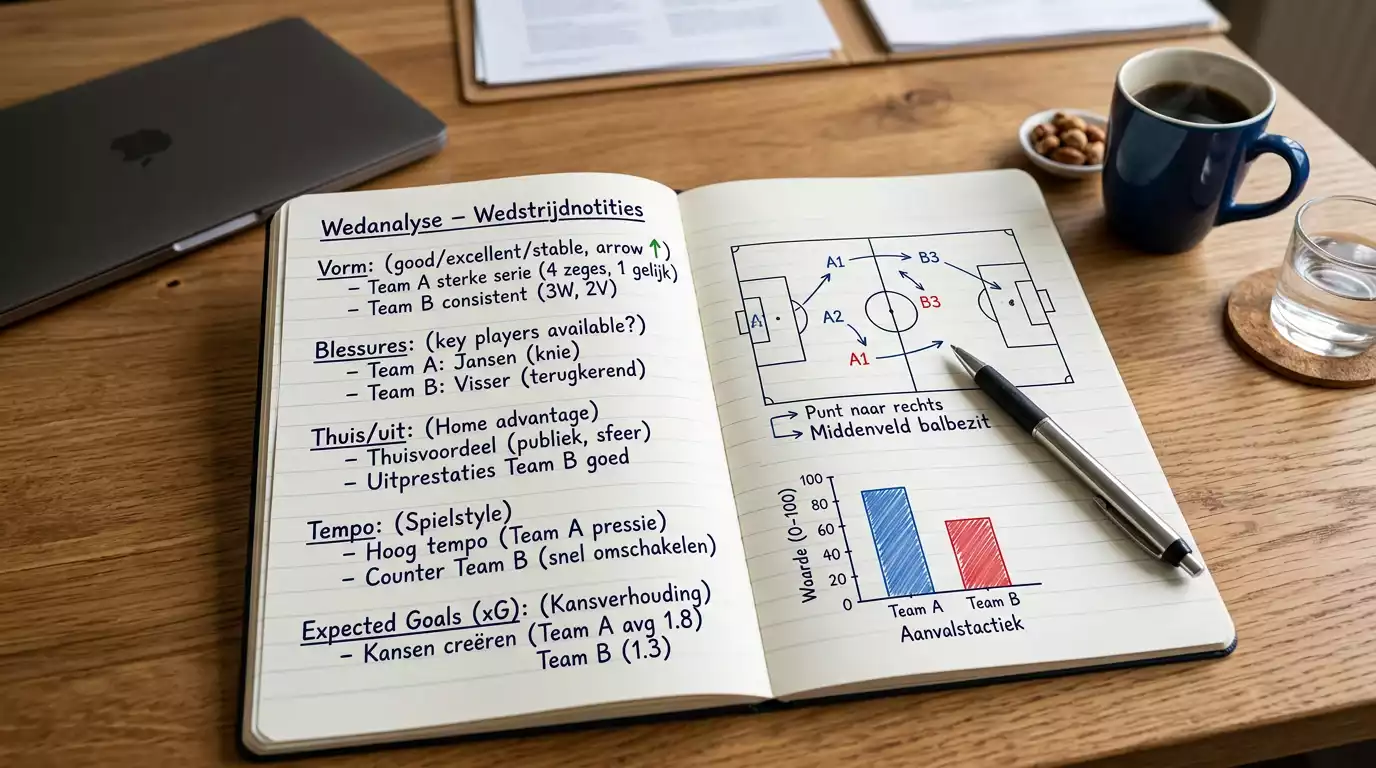 Wedanalyse – Wedstrijdnotities
Vorm: (good/excellent/stable, arrow ↑)
– Team A sterke serie (4 zeges, 1 gelijk)
– Team B consistent (3W, 2V)
Blessures: (key players available?)
– Team A: Jansen (knie)
– Team B: Visser (terugkerend)
Thuis/uit: (Home advantage)
– Thuisvoordeel (publiek, sfeer)
– Uitprestaties Team B goed
Tempo: (Spielstyle)
– Hoog tempo (Team A pressie)
– Counter Team B (snel omschakelen)
Expected Goals (xG): (Kansverhouding)
– Kansen creëren (Team A avg 1.8)
Team B (1.3)
A1 B3
B3
A A2
A1
Punt naar rechts
Middenveld balbezit
Waarde (0-100)
100
80
60
40
20
0
Team A Team B
Aanvalstactiek